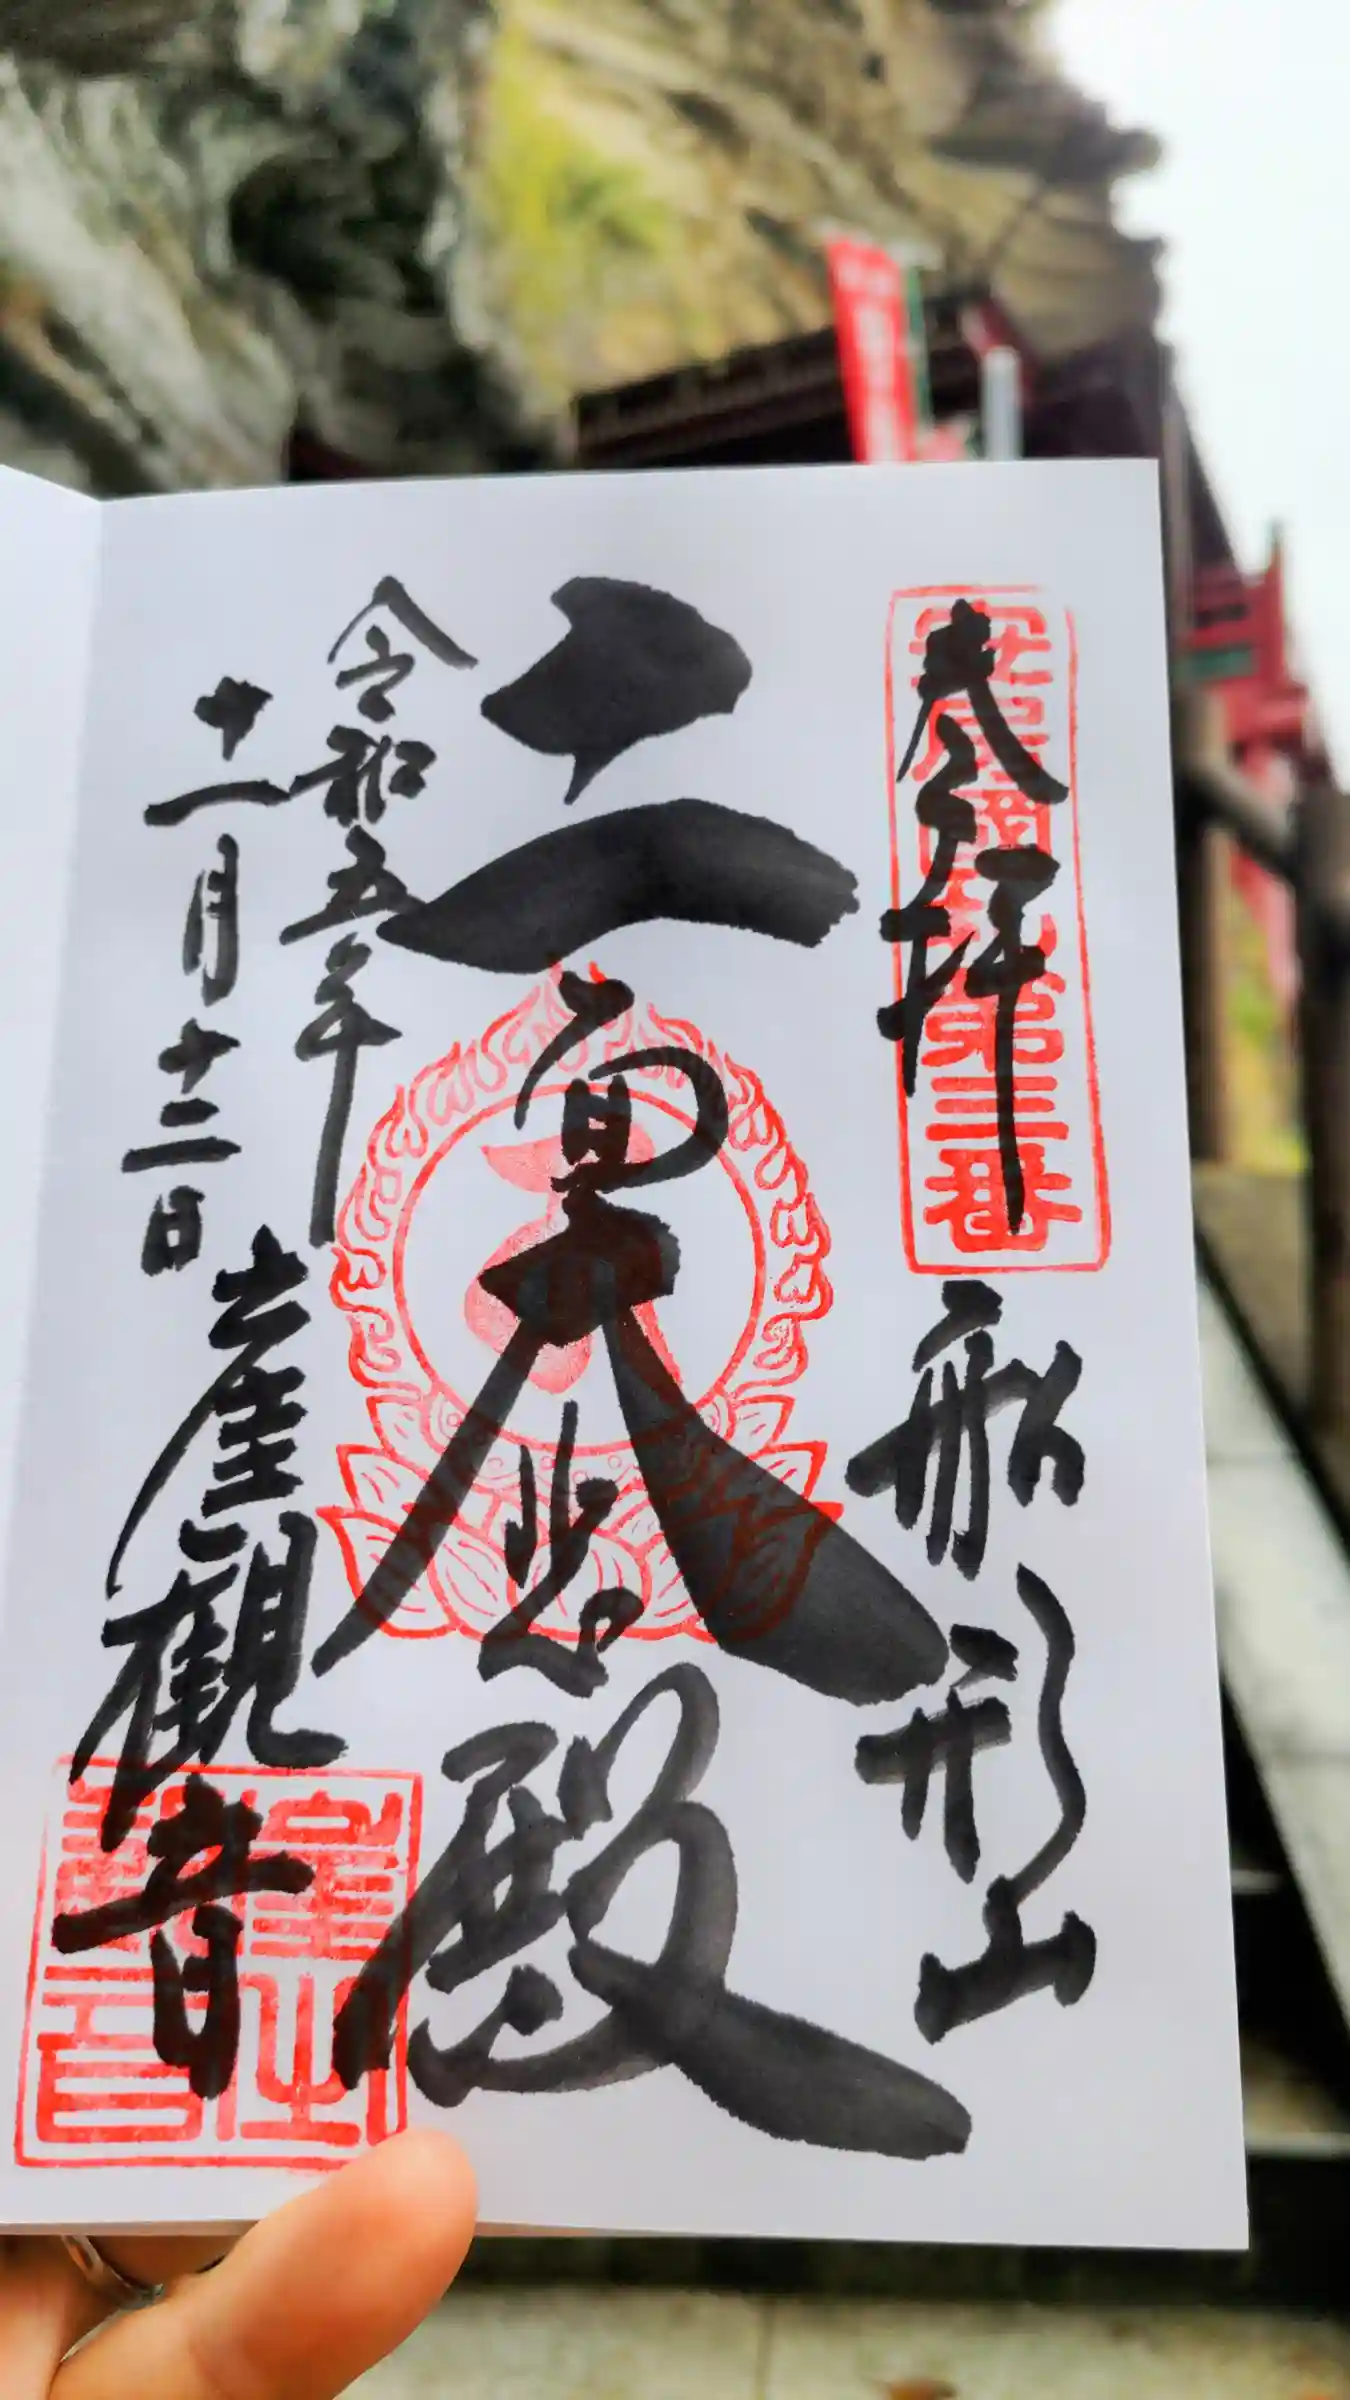 安房國札第三番
奉拝 船形山
十一面大悲殿
令和五年
十一月十二日
崖觀音
崖之
觀音